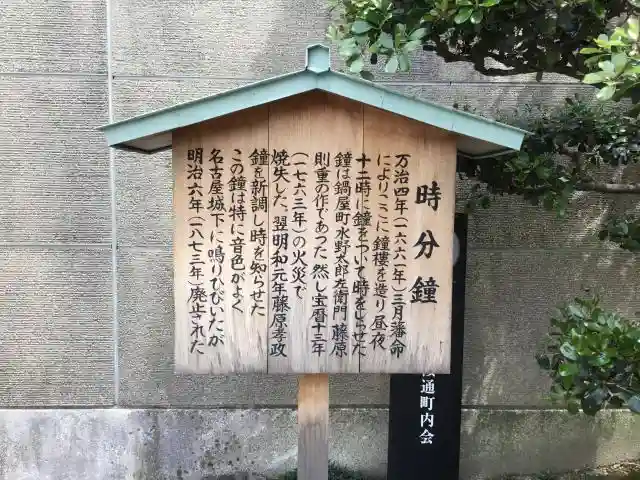 時分鐘
万治四年(一六六一年)三月藩命
によりここに鐘樓を造り昼夜
十二時に鐘をついて時をしらせた
鐘は鍋屋町水野太郎左衛門藤原
則重の作であった然し宝暦十三年
(一七六三年)の火災で
焼失した、翌明和元年藤原孝政
鐘を新調し時を知らせた
この鐘は特に音色がよく
名古屋城下に鳴りひびいたが
明治六年(一八七三年)廃止された
通町内会